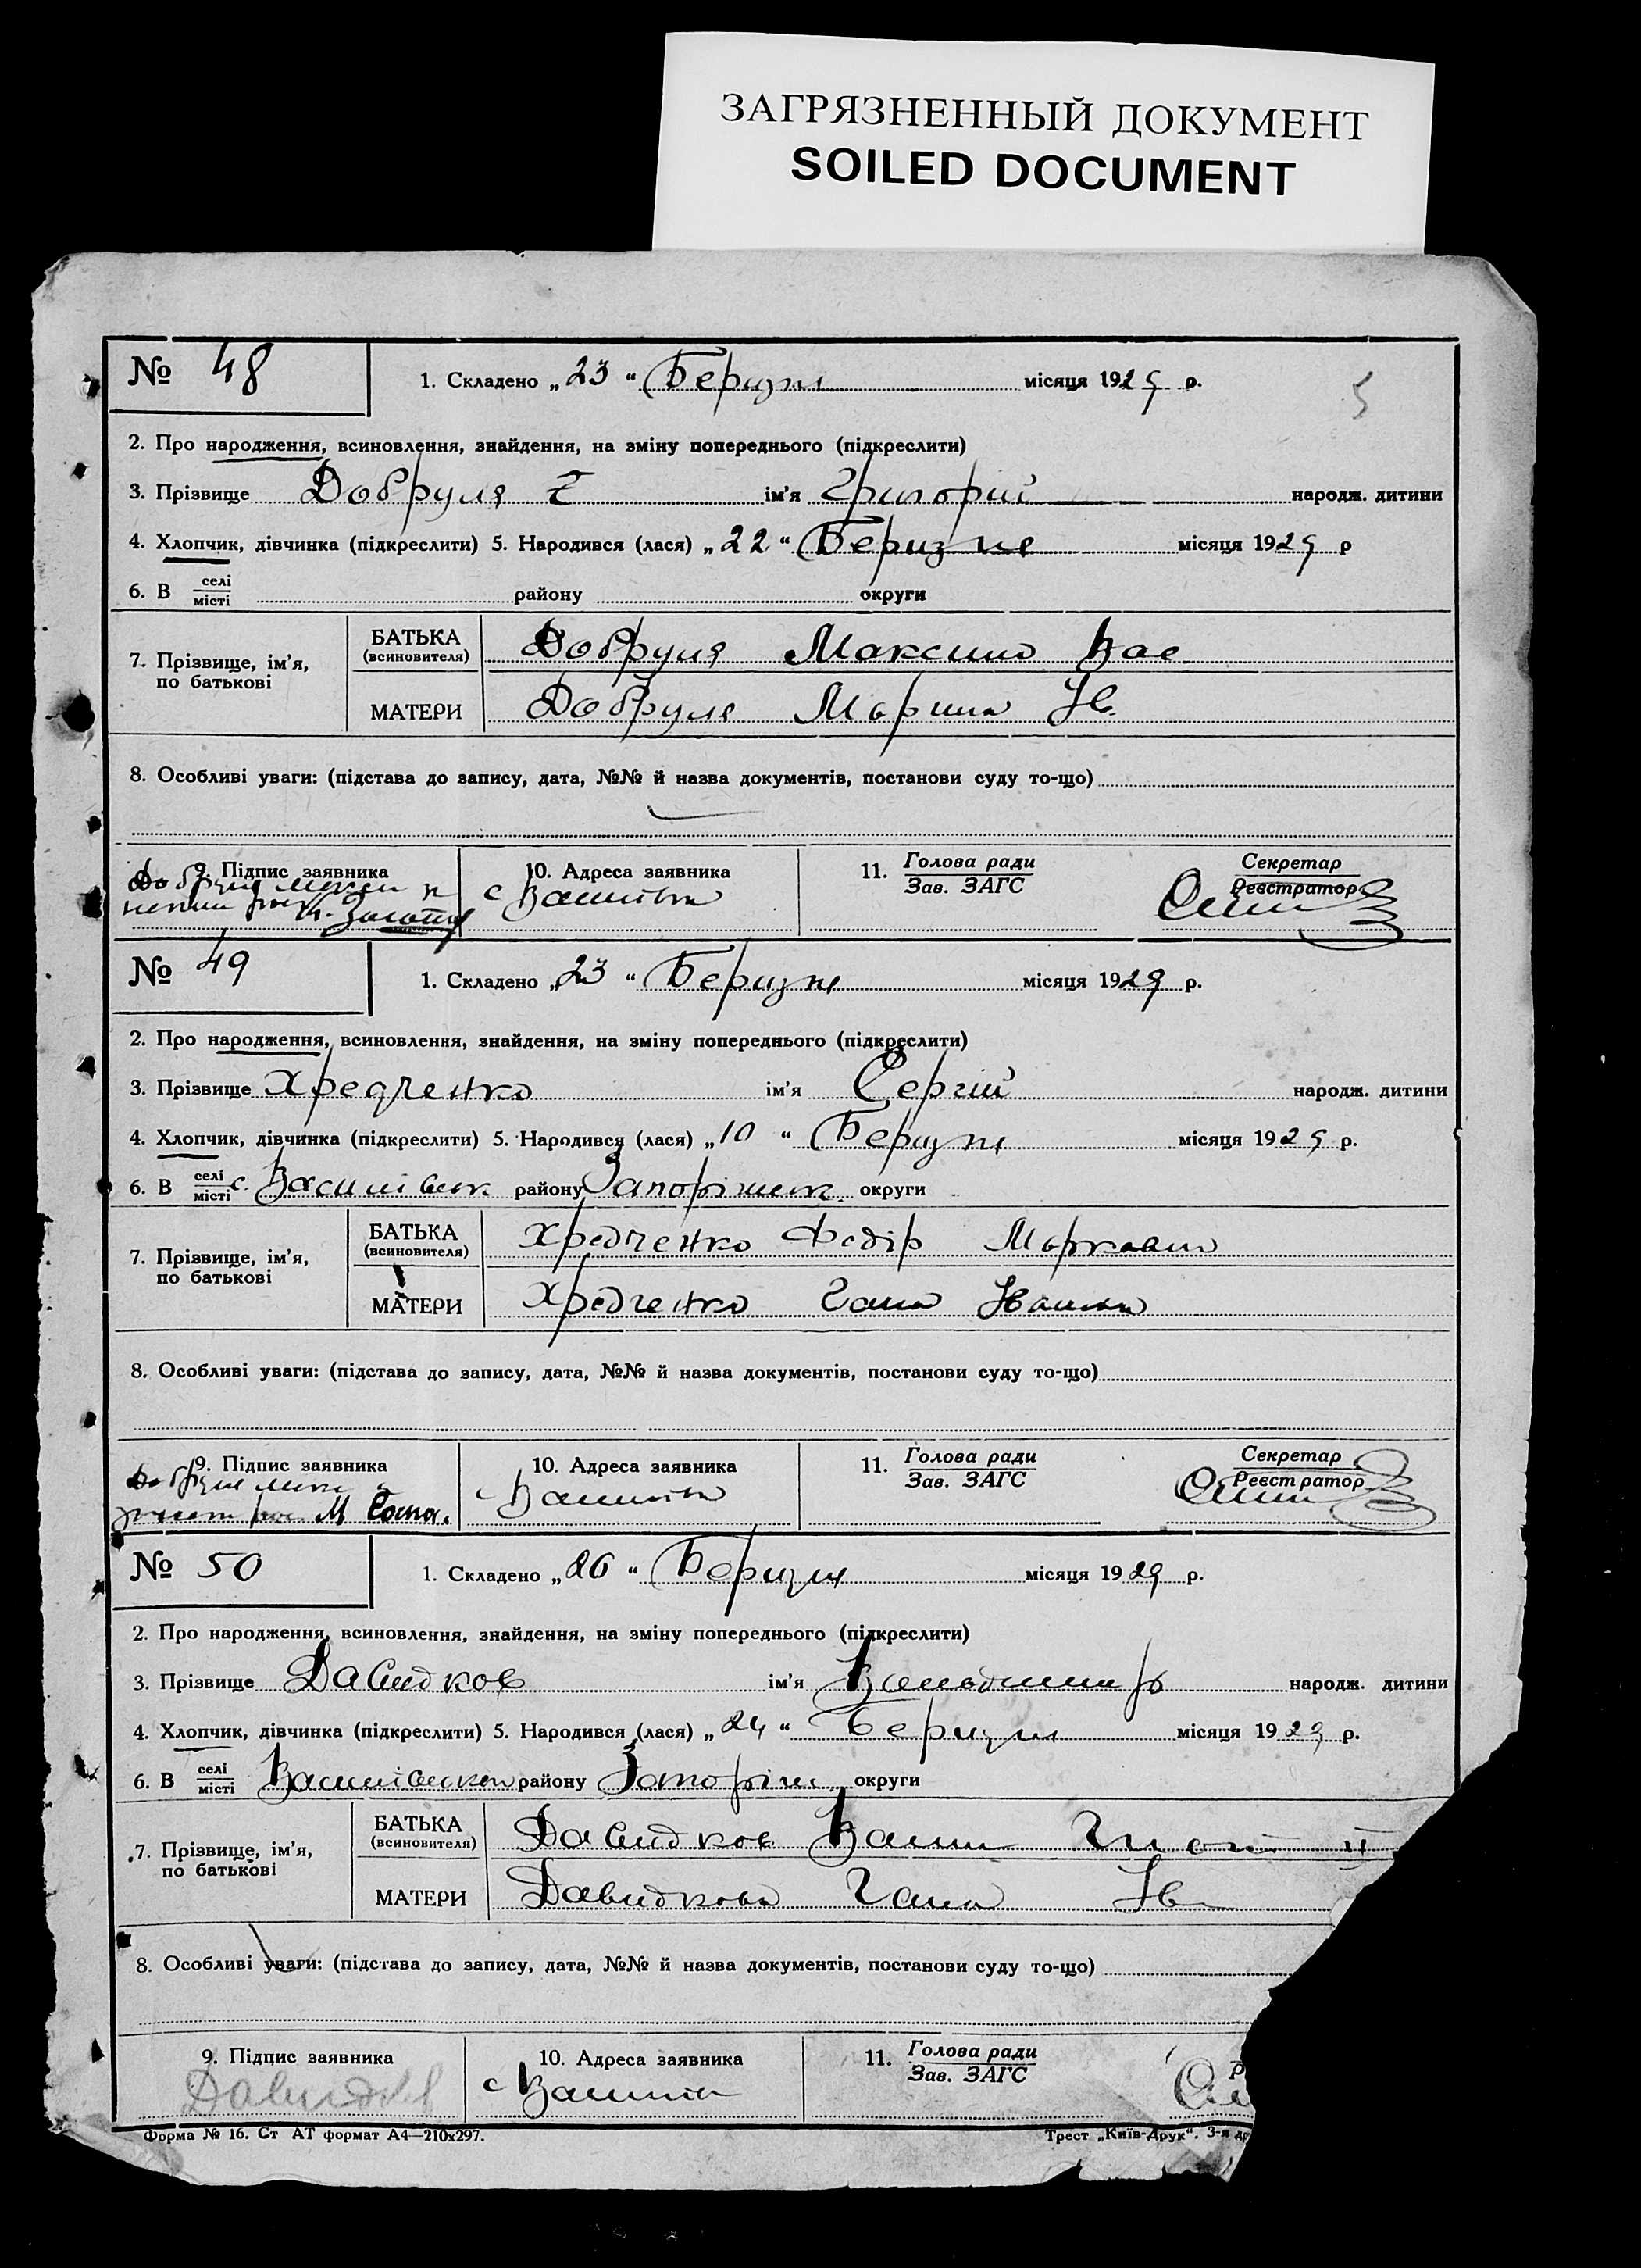 ЗАГРЯЗНЕННЫЙ ДОКУМЕНТ
SOILED DOCUMENT
5
№ 48
1. Складено „23“ Березня місяця 1929 р.
2. Про народження, всиновлення, знайдення, на зміну попереднього (підкреслити)
3. Прізвище Добруля ім'я Григорій народж. дитини
4. Хлопчик, дівчинка (підкреслити) 5. Народився (лася) „22“ Березня місяця 1929 р
6. В селі місті району округи
7. Прізвище, ім'я, по батькові
БАТЬКА (всиновителя) Добруля Максим Вас
МАТЕРИ Добруля Марина Ів.
8. Особливі уваги: (підстава до запису, дата, №№ й назва документів, постанови суду то-що)
9. Підпис заявника
Добруля
10. Адреса заявника
с Василівка
11. Голова ради
Зав. ЗАГС
Секретар
Реєстратор
№ 49
1. Складено „23“ Березня місяця 1929 р.
2. Про народження, всиновлення, знайдення, на зміну попереднього (підкреслити)
3. Прізвище Хредченко ім'я Сергій народж. дитини
4. Хлопчик, дівчинка (підкреслити) 5. Народився (лася) „10“ Березня місяця 1929 р.
6. В селі місті с. Василівськ району Запоріжськ. округи
7. Прізвище, ім'я, по батькові
БАТЬКА (всиновителя) Хредченко Федір Маркович
МАТЕРИ Хредченко Гана Іванівна
8. Особливі уваги: (підстава до запису, дата, №№ й назва документів, постанови суду то-що)
9. Підпис заявника
10. Адреса заявника
с Василівка
11. Голова ради
Зав. ЗАГС
Секретар
Реєстратор
№ 50
1. Складено „26“ Березня місяця 1929 р.
2. Про народження, всиновлення, знайдення, на зміну попереднього (підкреслити)
3. Прізвище Давидков ім'я Вольдимир народж. дитини
4. Хлопчик, дівчинка (підкреслити) 5. Народився (лася) „24“ Березня місяця 1929 р.
6. В селі місті Василівськ району Запоріж. округи
7. Прізвище, ім'я, по батькові
БАТЬКА (всиновителя) Давидков Васил
МАТЕРИ Давидкова Гана Ів
8. Особливі уваги: (підстава до запису, дата, №№ й назва документів, постанови суду то-що)
9. Підпис заявника
Давидков
10. Адреса заявника
с Василів
11. Голова ради
Зав. ЗАГС
Р
Форма № 16. Ст АТ формат А4—210х297.
Трест „Київ-Друк“. 3-я др